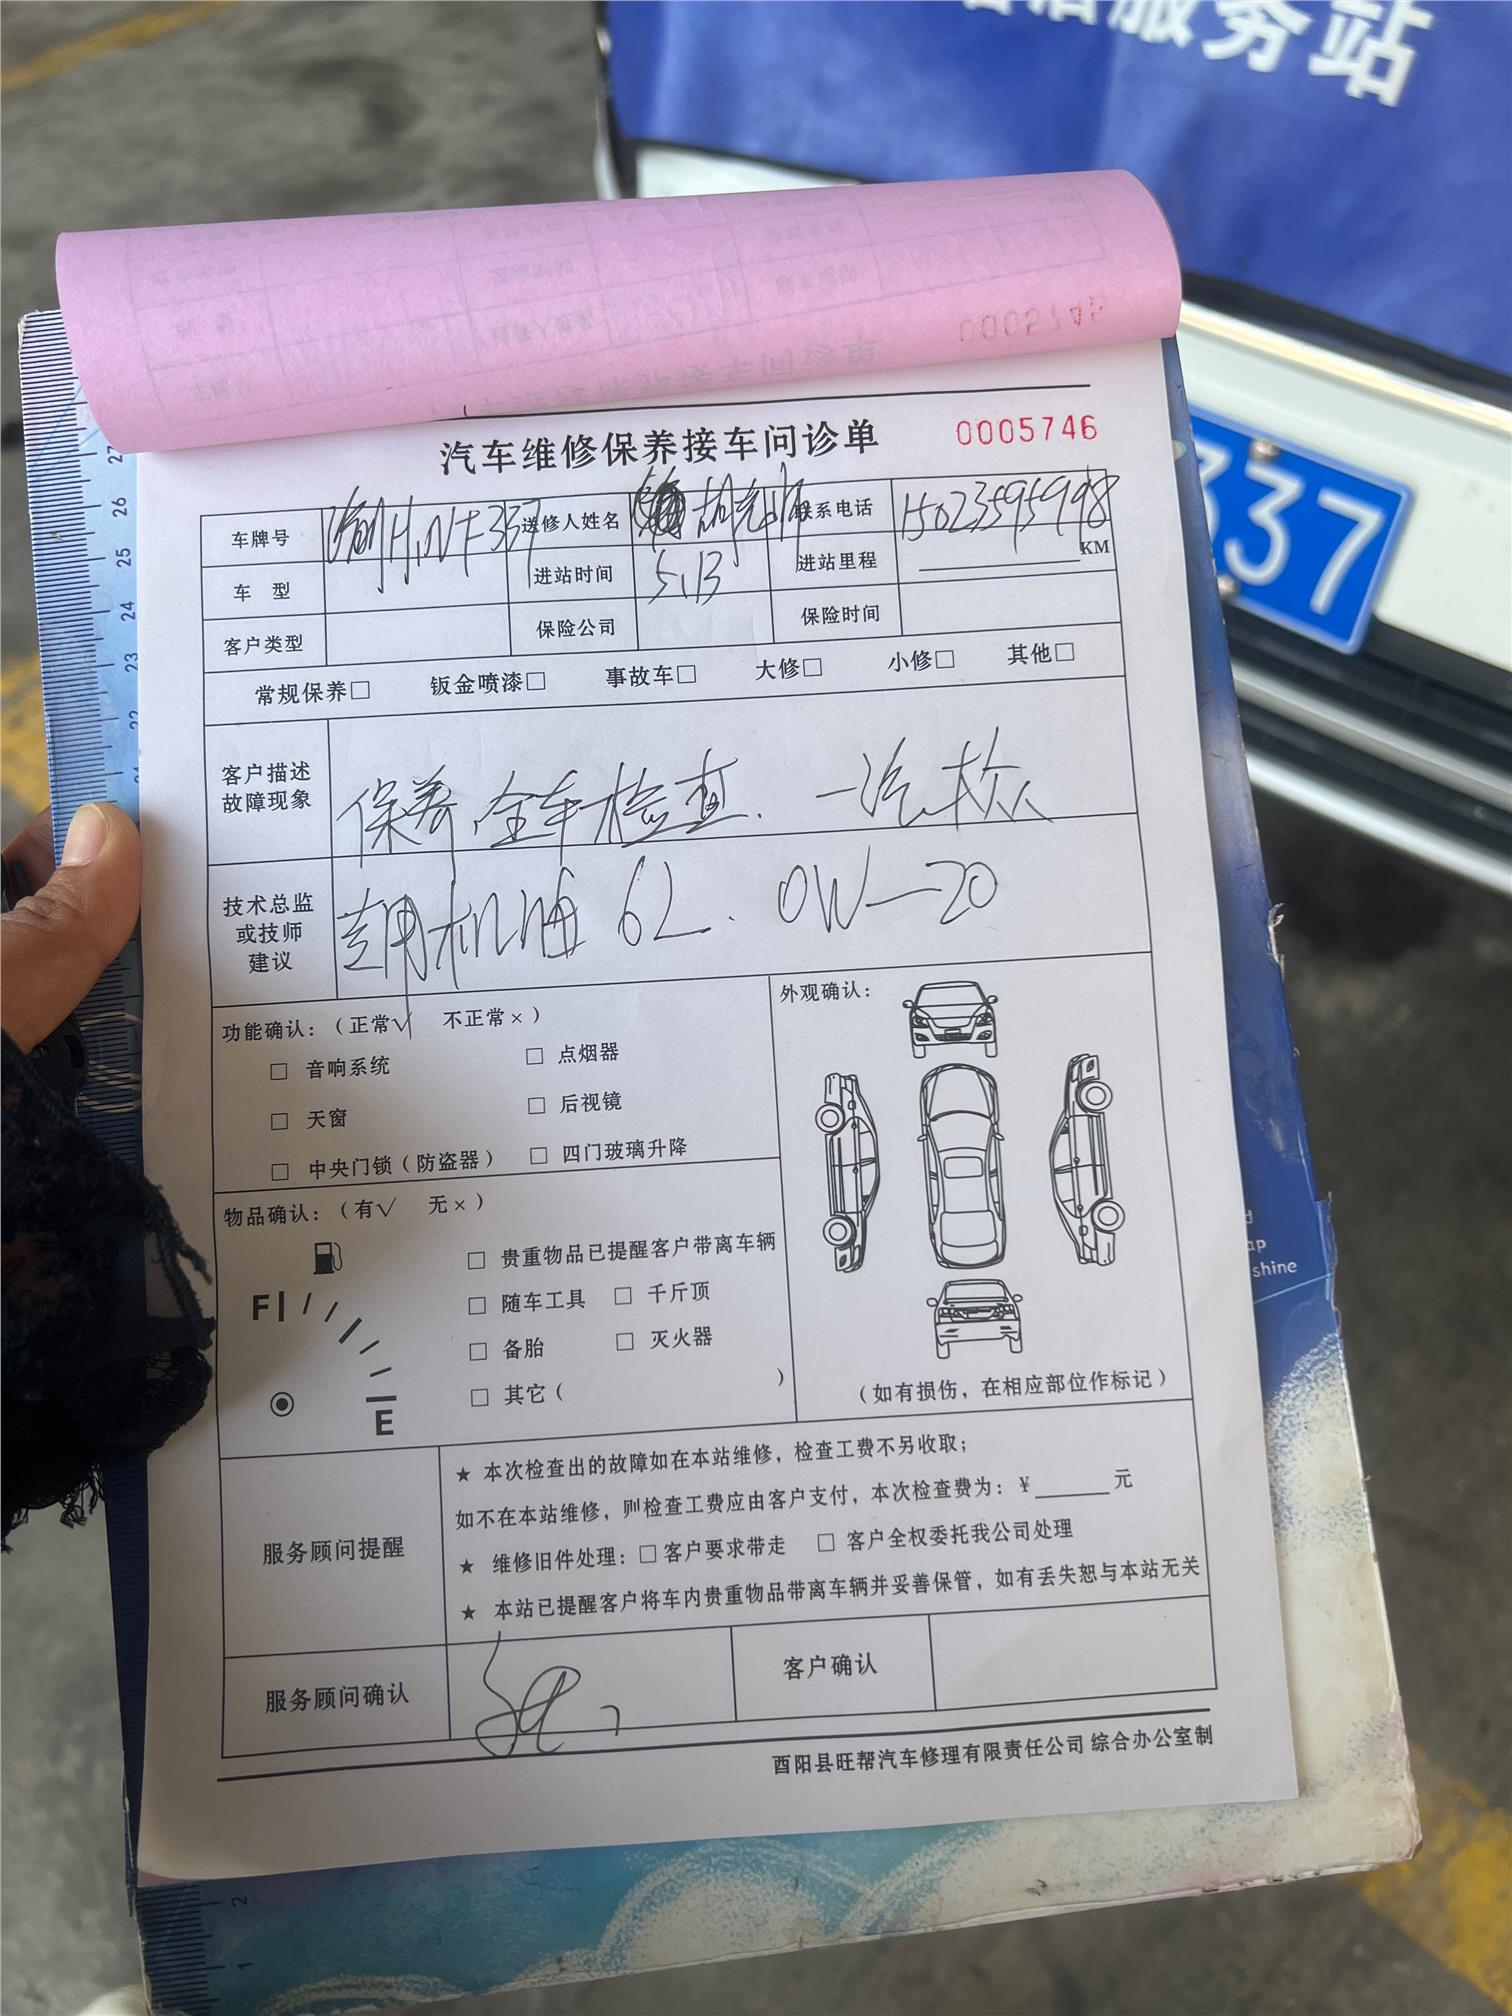 服务站
337
0005745
汽车维修保养接车问诊单 0005746
车牌号 渝 337 送修人姓名 胡 联系电话 15023595998
车 型 进站时间 5.13 进站里程 KM
客户类型 保险公司 保险时间
常规保养□ 钣金喷漆□ 事故车□ 大修□ 小修□ 其他□
客户描述
故障现象
保养.全车检查. 一汽大众
技术总监
或技师
建议
专用机油 6L. 0W—20
功能确认:（正常√ 不正常×）
□ 音响系统 □ 点烟器
□ 天窗 □ 后视镜
□ 中央门锁（防盗器） □ 四门玻璃升降
外观确认:
（如有损伤，在相应部位作标记）
物品确认:（有√ 无×）
□ 贵重物品已提醒客户带离车辆
□ 随车工具 □ 千斤顶
□ 备胎 □ 灭火器
□ 其它（ ）
F
E
服务顾问提醒
★ 本次检查出的故障如在本站维修，检查工费不另收取；
如不在本站维修，则检查工费应由客户支付，本次检查费为: ¥______元
★ 维修旧件处理: □客户要求带走 □ 客户全权委托我公司处理
★ 本站已提醒客户将车内贵重物品带离车辆并妥善保管，如有丢失恕与本站无关
服务顾问确认 客户确认
酉阳县旺帮汽车修理有限责任公司 综合办公室制
shine